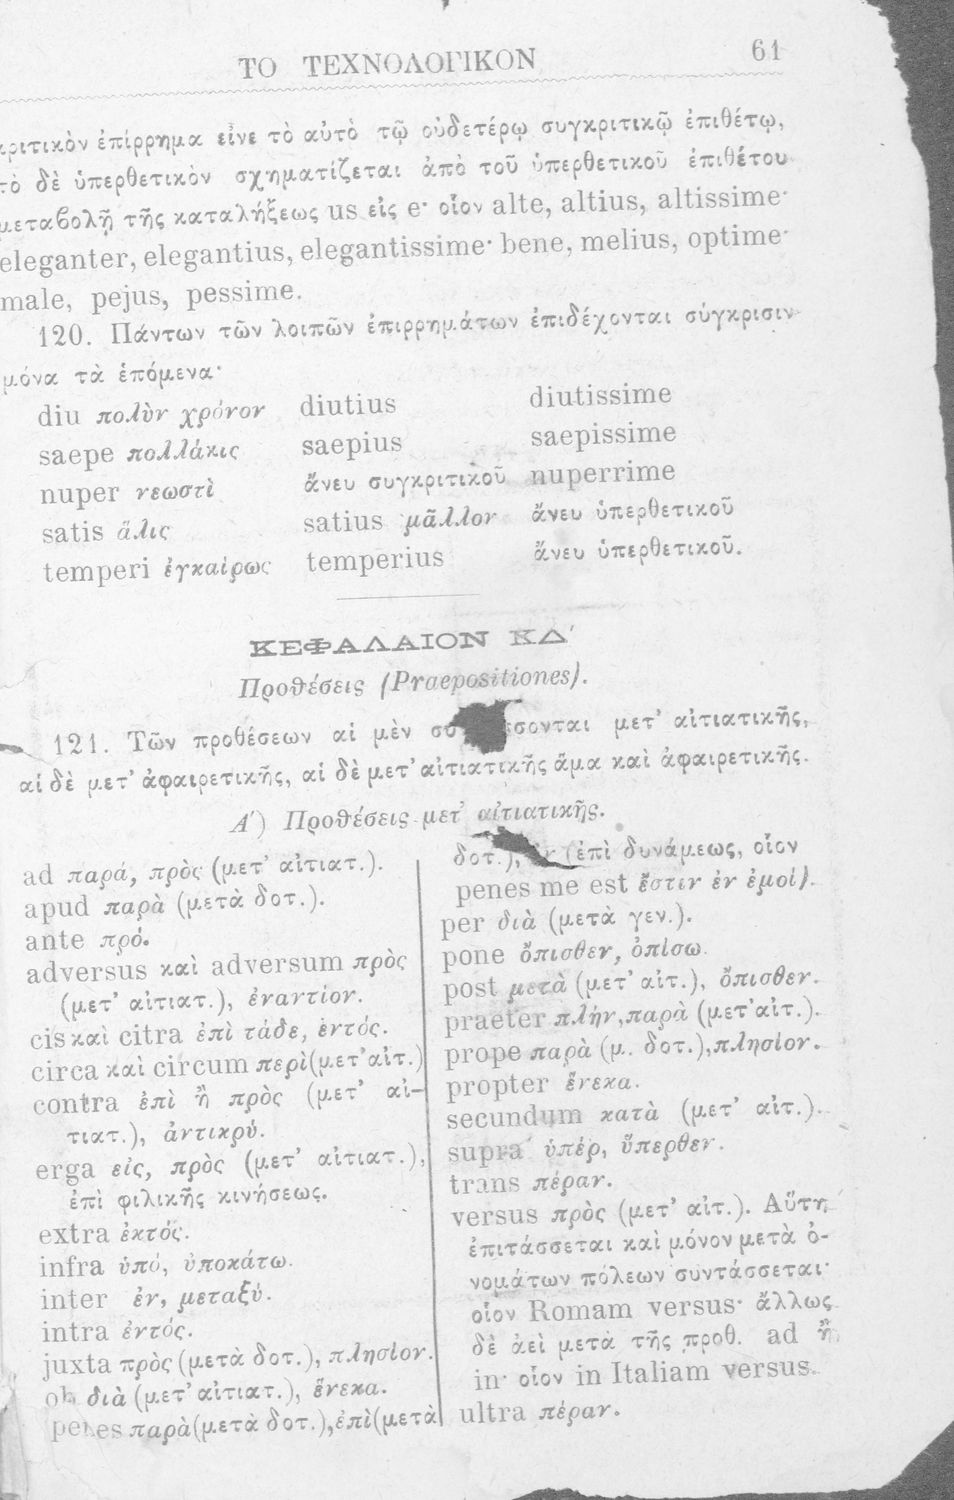 ΤΟ ΤΕΧΝΟΛΟΓΙΚΟΝ 61
κριτικὸν ἐπίρρημα εἶνε τὸ αὐτὸ τῷ οὐδετέρῳ συγκριτικῷ ἐπιθέτῳ,
τὸ δὲ ὑπερθετικὸν σχηματίζεται ἀπὸ τοῦ ὑπερθετικοῦ ἐπιθέτου
μεταβολῇ τῆς καταλήξεως us εἰς e· οἷον alte, altius, altissime·
eleganter, elegantius, elegantissime· bene, melius, optime·
male, pejus, pessime.
120. Πάντων τῶν λοιπῶν ἐπιρρημάτων ἐπιδέχονται σύγκρισιν
μόνα τὰ ἑπόμενα·
diu πολὺν χρόνον diutius diutissime
saepe πολλάκις saepius saepissime
nuper νεωστὶ ἄνευ συγκριτικοῦ nuperrime
satis ἅλις satius μᾶλλον ἄνευ ὑπερθετικοῦ
temperi ἐγκαίρως temperius ἄνευ ὑπερθετικοῦ.
ΚΕΦΑΛΑΙΟΝ ΚΔ΄
Προθέσεις (Praepositiones).
121. Τῶν προθέσεων αἱ μὲν σσονται μετ' αἰτιατικῆς,
αἱ δὲ μετ' ἀφαιρετικῆς, αἱ δὲ μετ' αἰτιατικῆς ἅμα καὶ ἀφαιρετικῆς.
Α΄) Προθέσεις μετ' αἰτιατικῆς.
ad παρά, πρὸς (μετ' αἰτιατ.).
apud παρὰ (μετὰ δοτ.).
ante πρό.
adversus καὶ adversum πρὸς
(μετ' αἰτιατ.), ἐναντίον.
cis καὶ citra ἐπὶ τάδε, ἐντός.
circa καὶ circum περὶ (μετ' αἰτ.)
contra ἐπὶ ἢ πρὸς (μετ' αἰ-
τιατ.), ἀντικρύ.
erga εἰς, πρὸς (μετ' αἰτιατ.),
ἐπὶ φιλικῆς κινήσεως.
extra ἐκτός.
infra ὑπό, ὑποκάτω.
inter ἐν, μεταξύ.
intra ἐντός.
juxta πρὸς (μετὰ δοτ.), πλησίον.
ob διὰ (μετ' αἰτιατ.), ἕνεκα.
penes παρὰ (μετὰ δοτ.), ἐπὶ (μετὰ
δοτ.), (ἐπὶ δυνάμεως, οἷον
penes me est ἔστιν ἐν ἐμοί).
per διὰ (μετὰ γεν.).
pone ὄπισθεν, ὀπίσω.
post μετὰ (μετ' αἰτ.), ὄπισθεν.
praeter πλὴν, παρὰ (μετ' αἰτ.).
prope παρὰ (μ. δοτ.), πλησίον.
propter ἕνεκα.
secundum κατὰ (μετ' αἰτ.).
supra ὑπέρ, ὕπερθεν.
trans πέραν.
versus πρὸς (μετ' αἰτ.). Αὕτη
ἐπιτάσσεται καὶ μόνον μετὰ ὀ-
νομάτων πόλεων συντάσσεται·
οἷον Romam versus· ἄλλως
δὲ ἀεὶ μετὰ τῆς προθ. ad ἢ
in· οἷον in Italiam versus.
ultra πέραν.